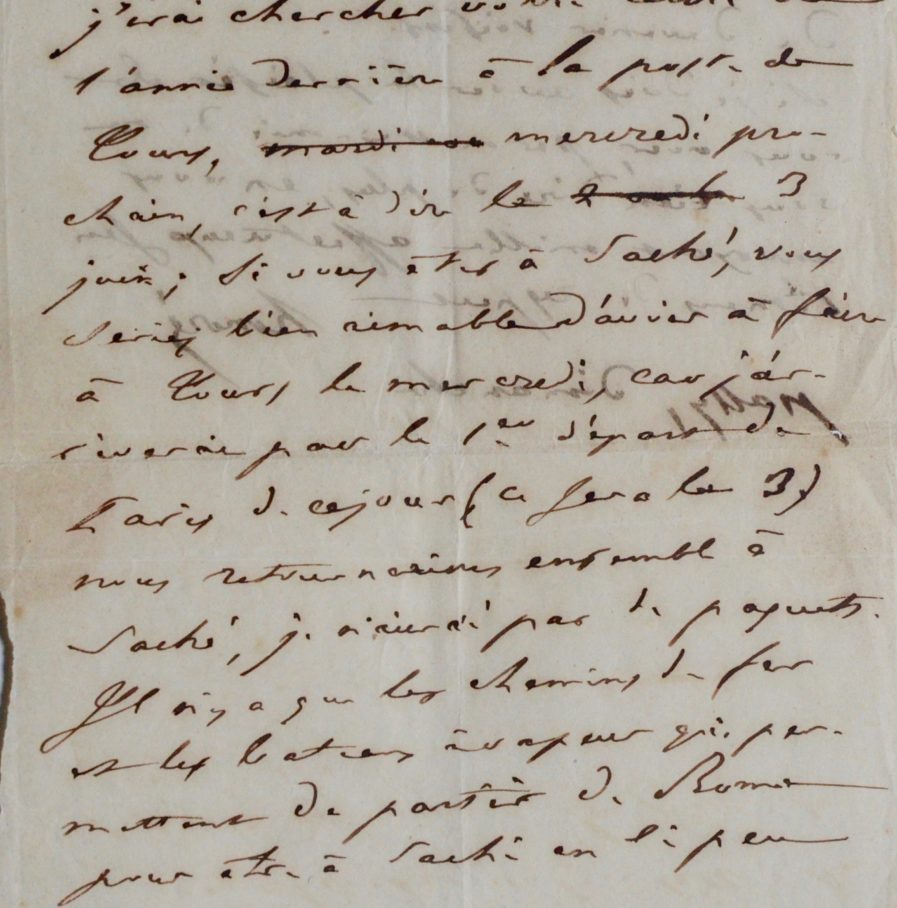 j'irai chercher votre
l'année dernière à la poste de
Tours, mardi ou mercredi pro-
chain, c'est à dire le 2 ou le 3
juin; si vous êtes à Saché, vous
seriez bien aimable d'avoir à faire
à Tours le mercredi, car j'ar-
riverai par le 1er départ de
Paris de ce jour (ce sera le 3)
nous retournerions ensemble à
Saché, je n'aurai pas de paquets.
Il n'y a que les chemins de fer
et les bateaux à vapeur qui per-
mettent de partir de Rome
pour être à Saché en si peu